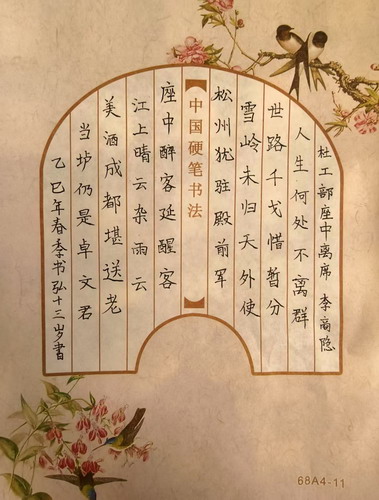 杜工部座中离席 李商隐
人生何处不离群
世路干戈惜暂分
雪岭未归天外使
松州犹驻殿前军
【中国硬笔书法】
座中醉客延醒客
江上晴云杂雨云
美酒成都堪送老
当垆仍是卓文君
乙巳年春季书弘十三岁书
68A4-11